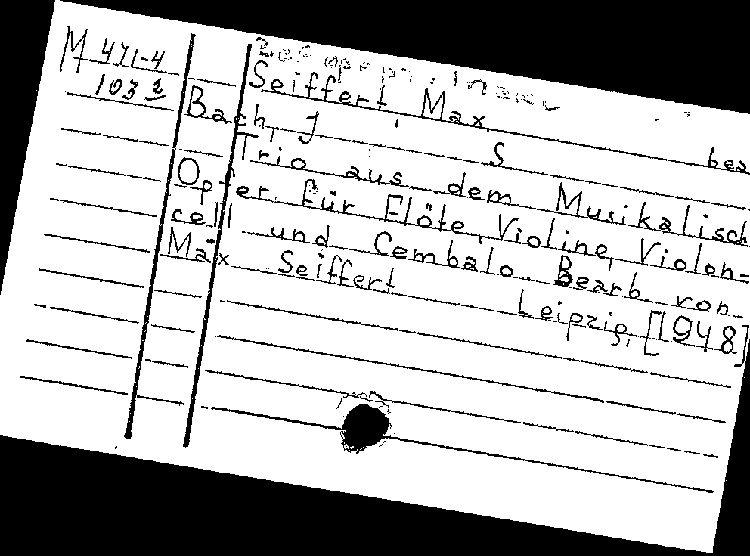 M 471-4
103 2
Seiffert, Max
bea
Bach, J. S.
Trio aus dem Musikalisch
Opfer für Flöte, Violine, Violon-
cell und Cembalo. Bearb. von
Max Seiffert
Leipzig, [1948]